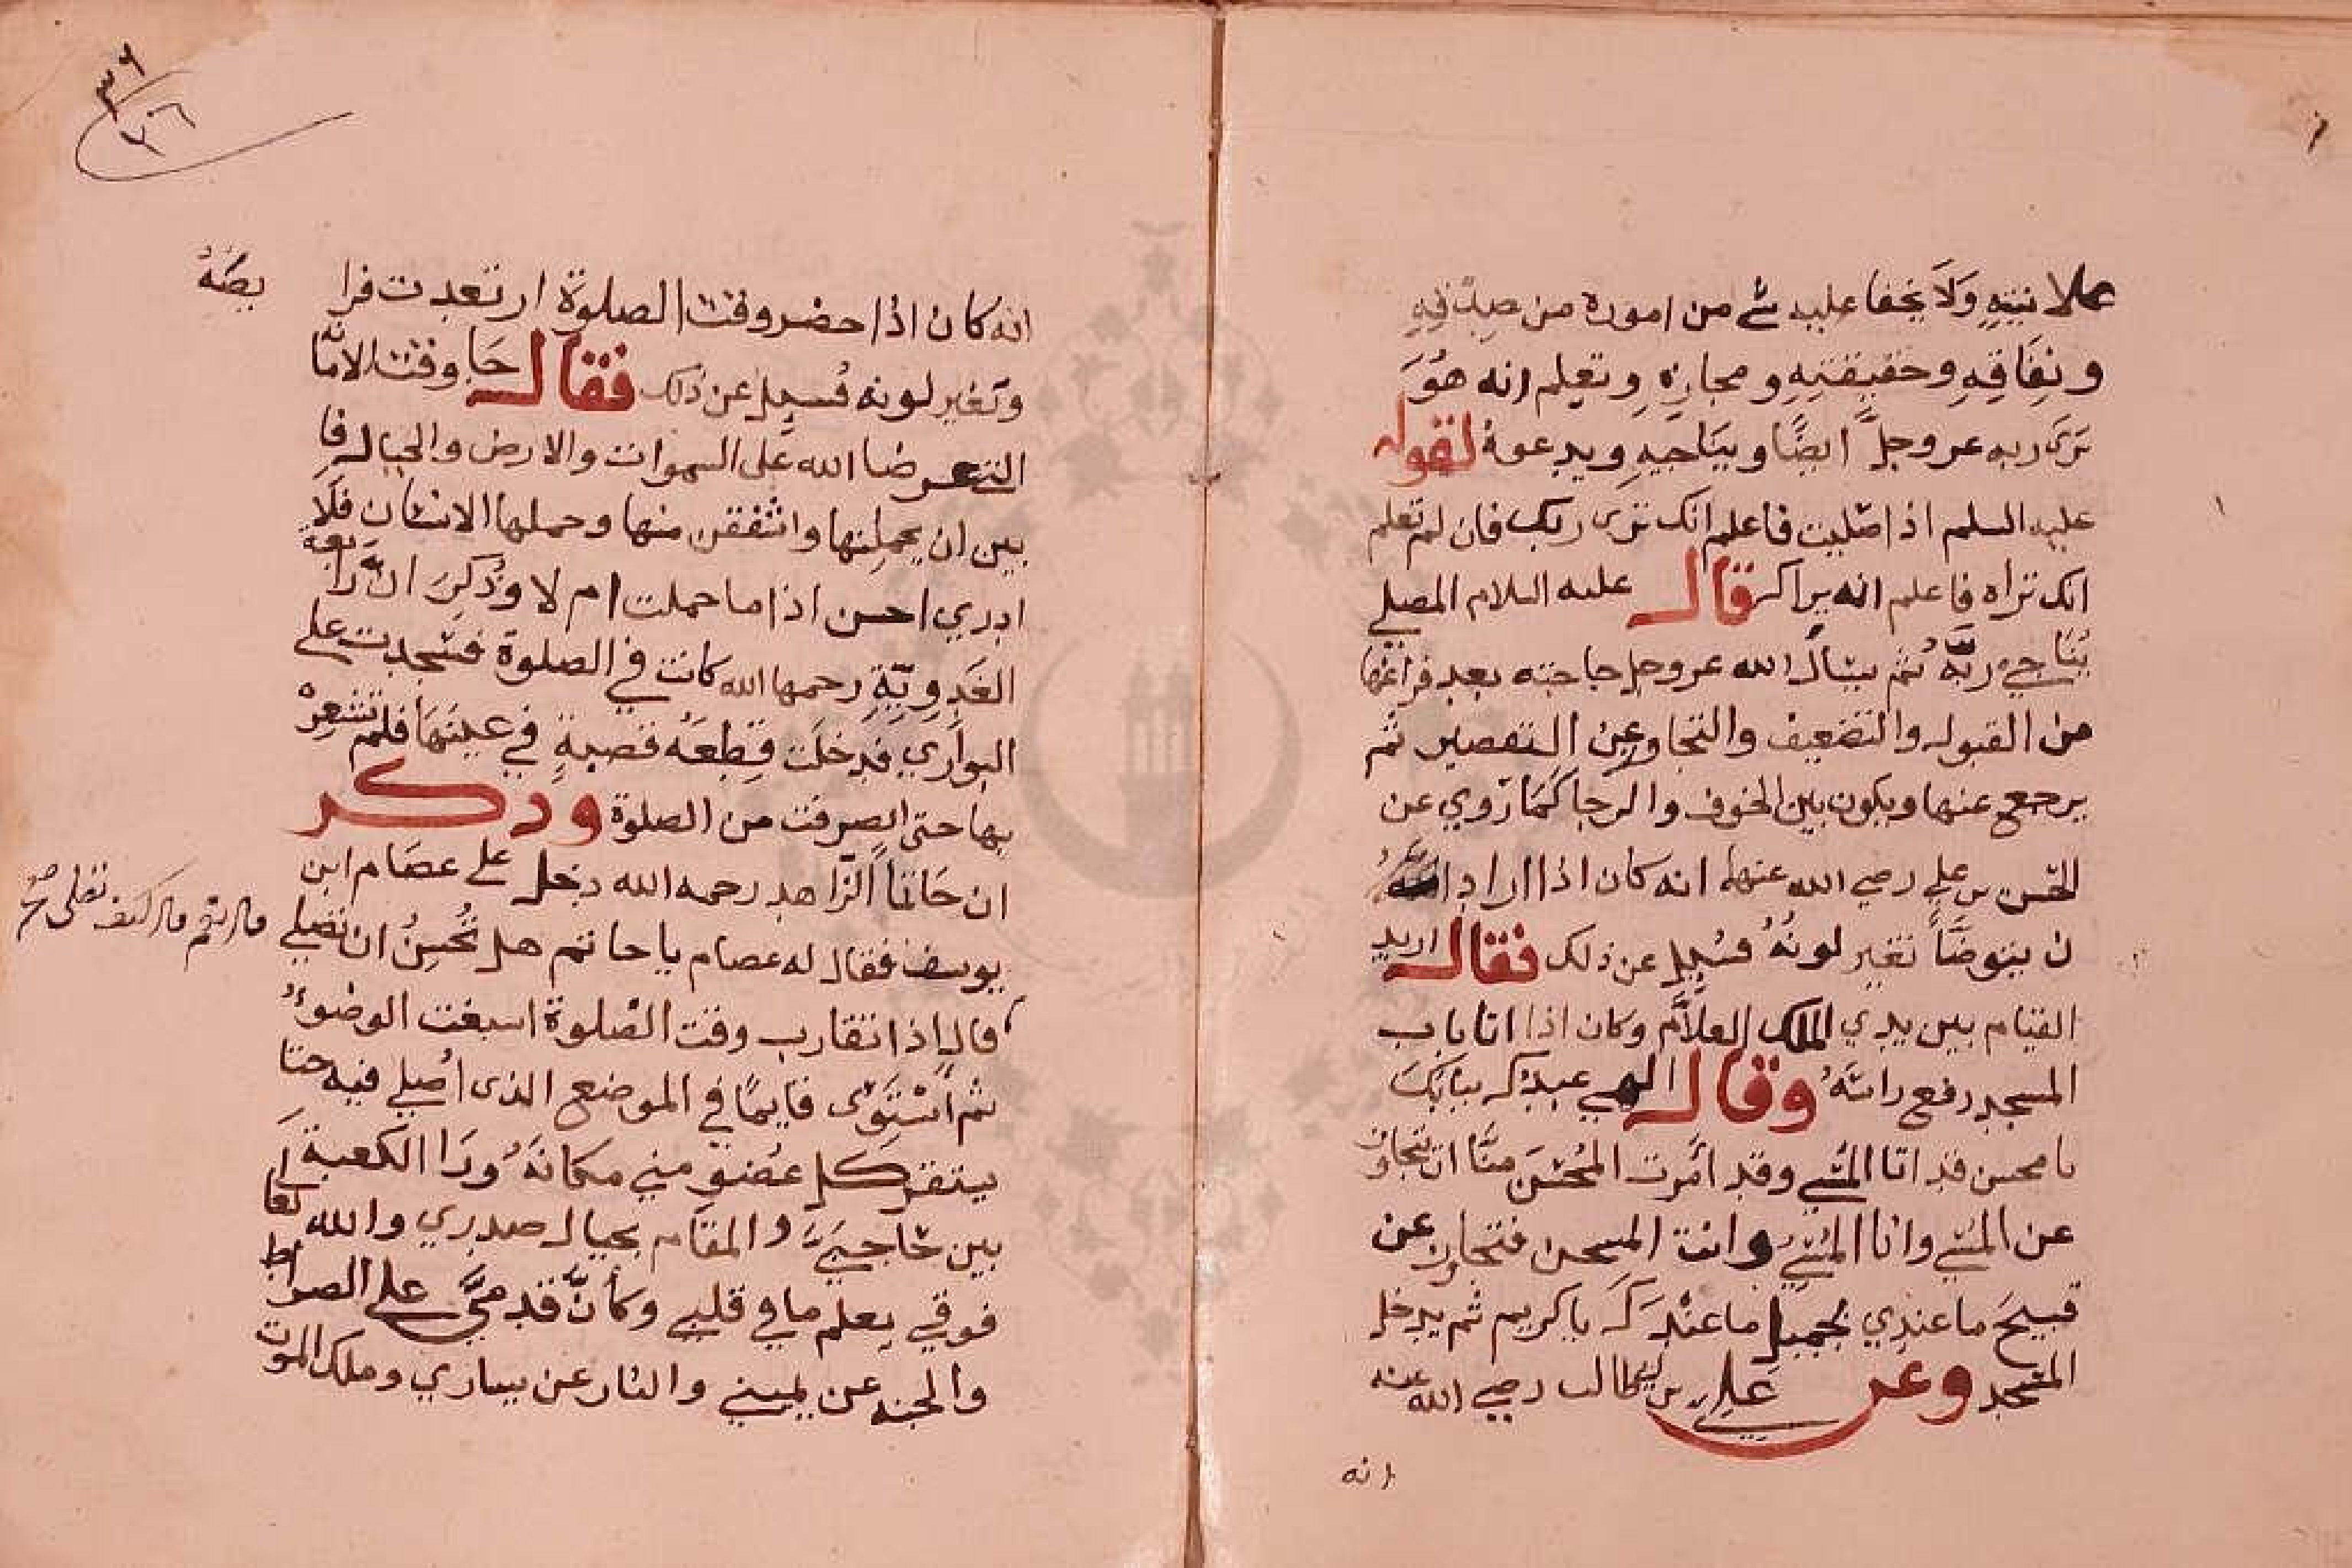 علانيته ولا يخفا عليه شي من اموره من صدقه
ونفاقه وحقيقته ومجازه وتعلم انه هو
ترى ربه عز وجل ايضا ويناجيه ويدعوه لقوله
عليه السلم اذا صليت فاعلم انك ترى ربك فان لم تعلم
انك تراه فاعلم انه يراك قال عليه السلام المصلي
يناجي ربه ثم يسال الله عز وجل حاجته بعد فراغها
من القبول والتضعيف والتجاوز عن التقصير ثم
يرجع عنها ويكون بين الخوف والرجا كما روي عن
الحسن بن علي رضي الله عنهما انه كان اذا اراد
ن يتوضأ تغير لونه فسيل عن ذلك فقال اريد
القيام بين يدي الملك العلام وكان اذا اتا باب
المسجد رفع راسه وقال الهي عبدك ببابك
يا محسن قد اتا المسي وقد امرت المحسن منا ان يتجاوز
عن المسي وانا المسي وانت المحسن فتجاوز عن
قبيح ما عندي بجميل ما عندك يا كريم ثم يدخل
المسجد وعن علي بن ابي طالب رضي الله عنه
انه
٣٦
انه كان اذا حضر وقت الصلوة ارتعدت فرا يصه
وتغير لونه فسيل عن ذلك فقال جا وقت الاما
التي عرضا الله على السموات والارض والجبال فا
بين ان يحملنها واشفقن منها وحملها الانسان فلا
ادري احسن اذا ما حملت ام لا وذكر ان رابعة
العدوية رحمها الله كانت في الصلوة فسجدت على
البواري فدخلت قطعه قصبة في عينها فلم تشعر
بها حتى انصرفت من الصلوة وذكر
ان حاتما الزاهد رحمه الله دخل على عصام ابن
يوسف فقال له عصام يا حاتم هل تحسن ان تصلي قال نعم قال كيف تصلي صح
قال اذا تقارب وقت الصلوة اسبغت الوضوء
ثم استوى قايما في الموضع الذي اصلي فيه حتا
يستقر كل عضو مني مكانه وارا الكعبة
بين حاجبي والمقام بحيال صدري والله تعا
فوقي يعلم ما في قلبي وكأن قدمي على الصراط
والجنه عن يميني والنار عن يساري وملك الموت